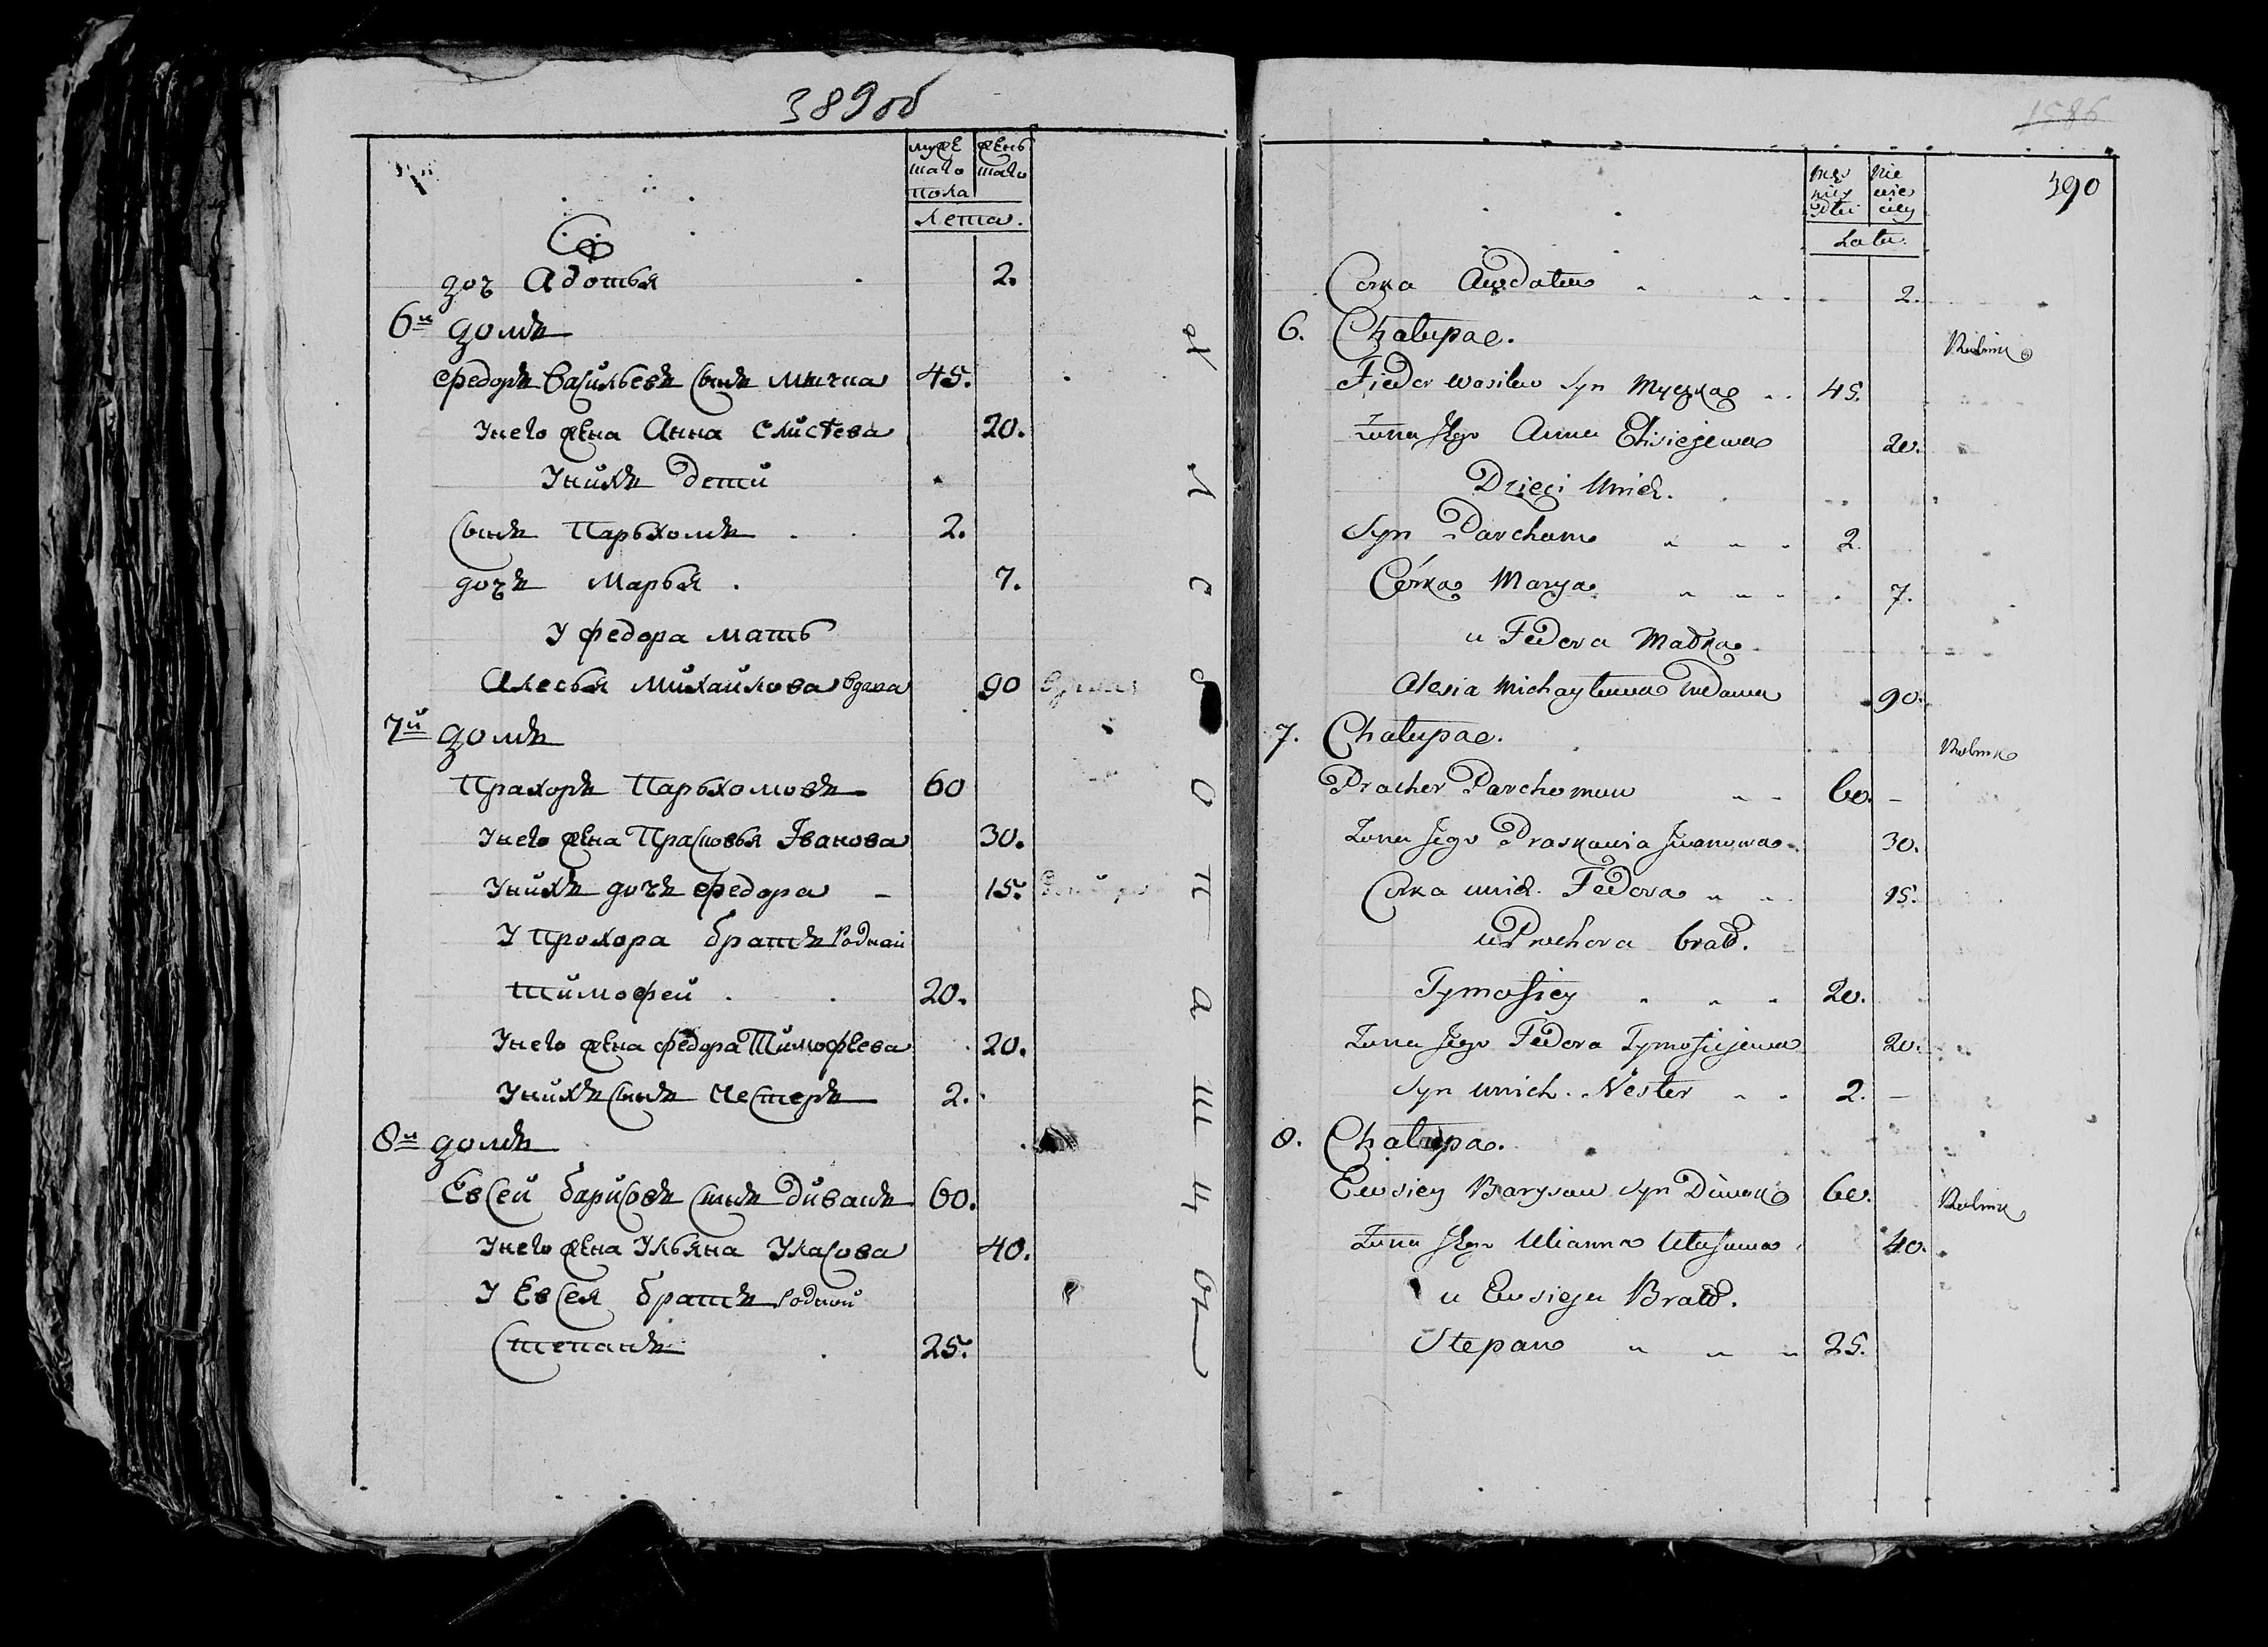 389об
муже
шаго
пола
жень
шаго
Лета.
доч Адотья 2.
6й домъ
Федоръ Васильевъ сынъ Мычка 45.
У него жена Анна Елисѣева 20.
У нихъ дети
сынъ Парьхомъ 2.
дочь Марья 7.
У Федора мать
Алесья Михайлова вдова 90
7й домъ
Прахоръ Парьхомовъ 60
У него жена Прасковья Іванова 30.
У нихъ дочь Федора 15.
У Прохора братъ Родной
Тимофей 20.
У него жена Федора Тимофеева 20.
У нихъ сынъ Нестеръ 2.
8й домъ
Евсей Барисовъ сынъ Дивакъ 60.
У него жена Ульяна Уласова 40.
У Евсея братъ Родной
Степанъ 25.
390
Lata.
Corka Awdatia 2.
6. Chalupa.
Fiedor Wasilew Syn Myczka 45.
Zona Jego Anna Elisiejewa 20.
Dzieci Unich.
Syn Parchom 2.
Córka Marya 7.
u Fedora Matka
Alesia Michayłowa Wdowa 90.
7. Chalupa.
Prachor Parchomow 60.
Zona Jego Praskowia Iwanowa 30.
Corka unich Fedora 15.
u Prochora brat.
Tymofiey 20.
Zona Jego Fedora Tymofiejewa 20.
Syn unich Nester 2.
8. Chalupa.
Ewsiey Barysow Syn Diwak 60.
Zona Jego Ulianna Ułasowa 40.
u Ewsieja Brat.
Stepan 25.